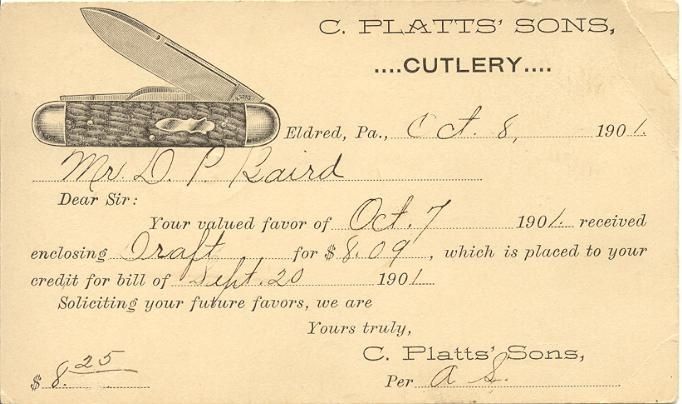 C. PLATTS' SONS,
....CUTLERY....
Eldred, Pa., Oct. 8, 1901.
Mr. D. P. Baird
Dear Sir:
Your valued favor of Oct. 7 1901. received
enclosing Draft for $ 8.09, which is placed to your
credit for bill of Sept. 20 1901.
Soliciting your future favors, we are
Yours truly,
C. Platts' Sons,
$ 8.25
Per A S.